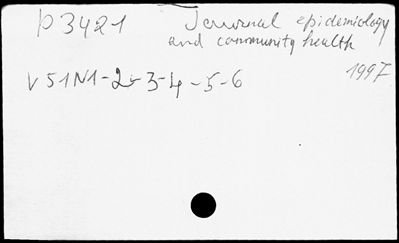 P3421 Journal epidemiology
and community health
V51N1-2-3-4-5-6 1997